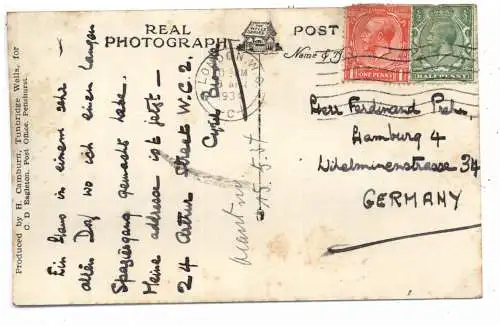 Produced by H. Camburn, Tunbridge Wells, for
C. D. Eagleton, Post Office, Penshurst.
REAL
PHOTOGRAPH
POST
Name &
LONDON.W.
193
ONE PENNY
HALFPENNY
Ein Haus in einem sehr
alten Dorf wo ich einen langen
Spaziergang gemacht habe.
Meine addresse ist jetzt —
24 Arthur Street W.C.2.
Cyril
15.5.34
Herr Ferdinand
Hamburg 4
Wilhelminenstrasse 34
GERMANY